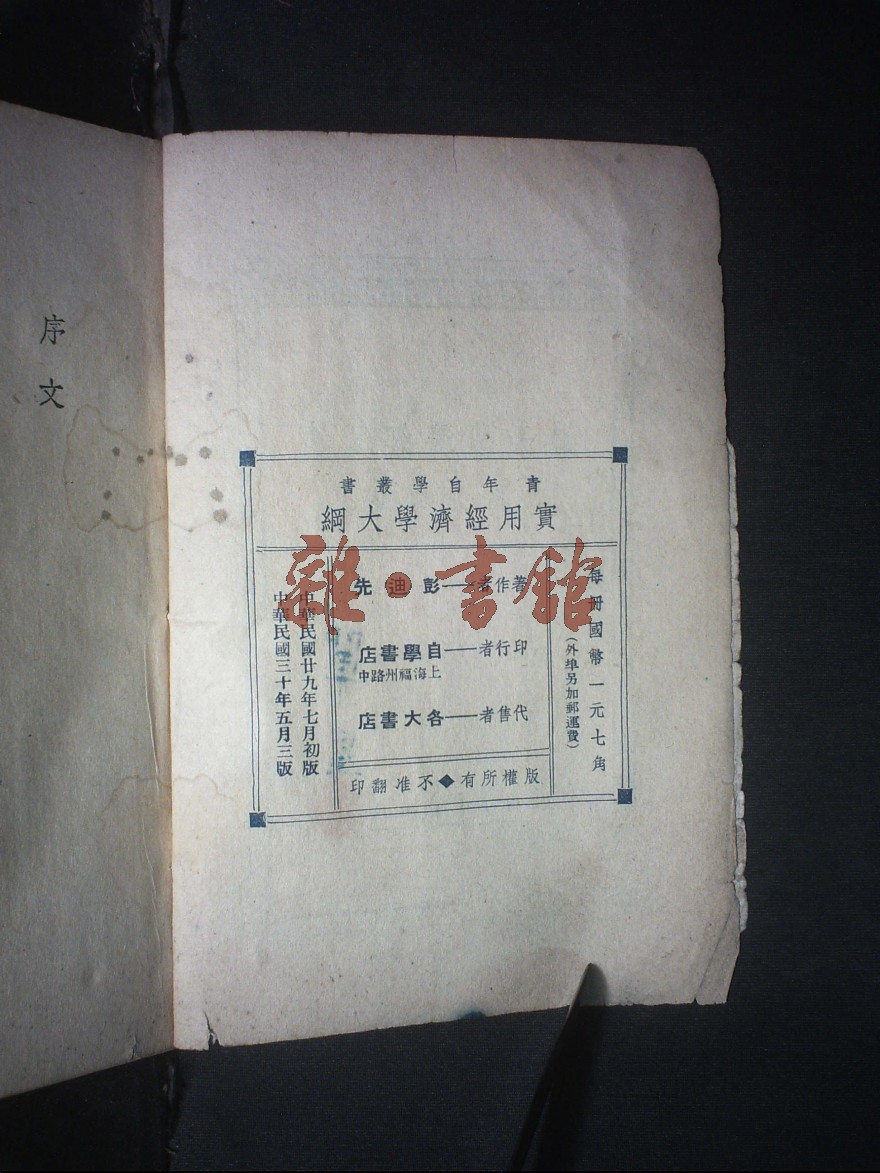 青年自學叢書
實用經濟學大綱
每冊國幣一元七角
(外埠另加郵運費)
著作者——彭迪先
印行者——自學書店
上海福州路中
代售者——各大書店
版權所有◆不准翻印
中華民國廿九年七月初版
中華民國三十年五月三版
序文
雜·書館